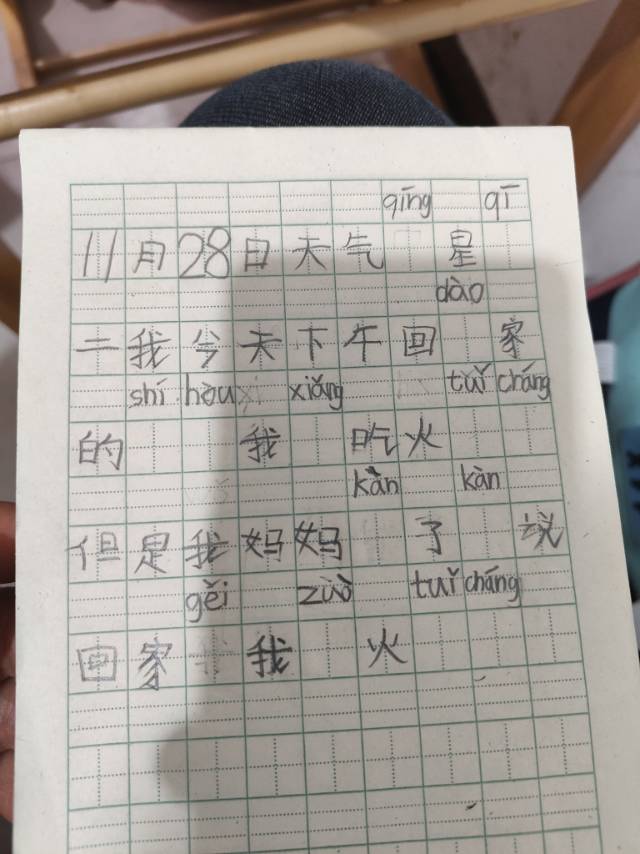 qīng qī
11月28日天气 星
dào
二我今天下午回 家
shí hòu xiǎng tuǐ cháng
的 我 吃火
kàn kàn
但是我妈妈 了 说
gěi zuò tuǐ cháng
回家 我 火